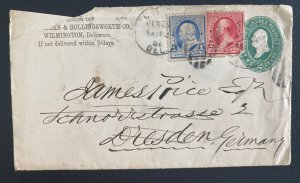 & HOLLINGSWORTH CO.
WILMINGTON, Delaware,
If not delivered within 5 days.
DEL
James Price Esq.
Schnorrstrasse 2
Dresden
Germany